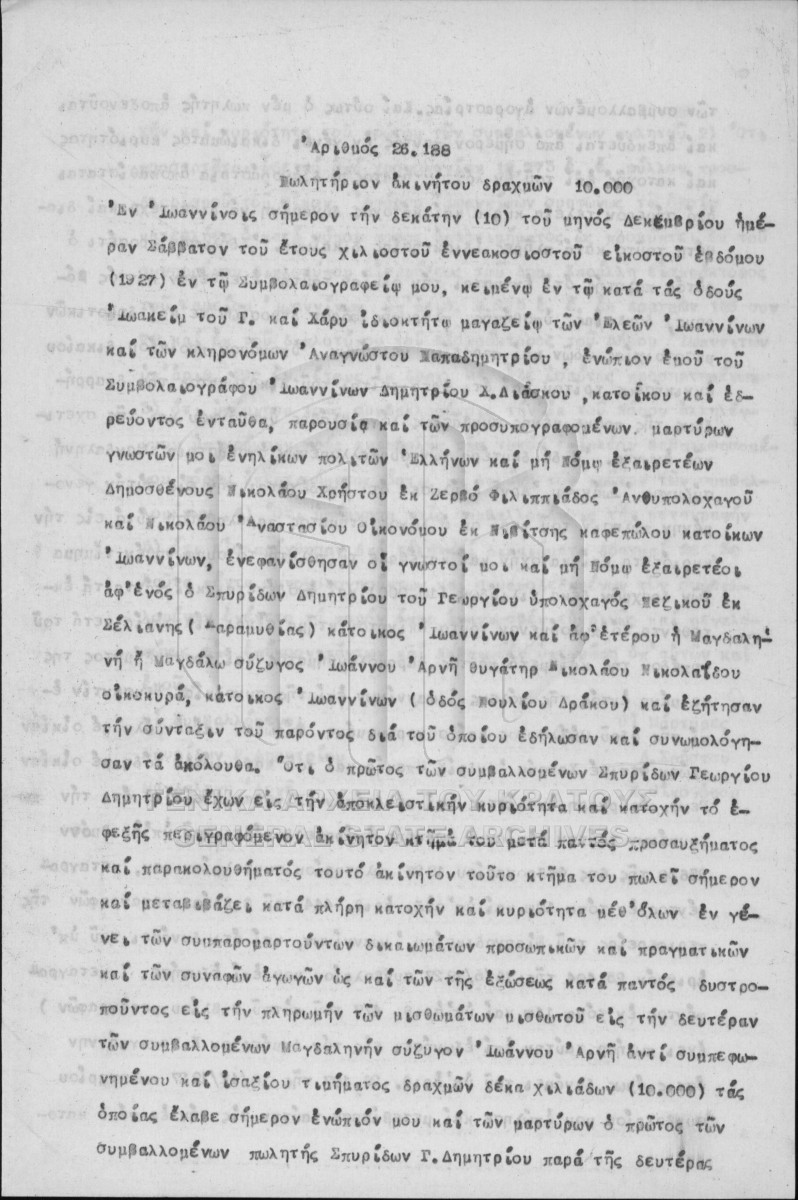 Ἀριθμός 26.188
Πωλητήριον ἀκινήτου δραχμῶν 10.000
Ἐν Ἰωαννίνοις σήμερον τήν δεκάτην (10) τοῦ μηνός Δεκεμβρίου ἡμέ-
ραν Σάββατον τοῦ ἔτους χιλιοστοῦ ἐννεακοσιοστοῦ εἰκοστοῦ ἑβδόμου
(1927) ἐν τῷ Συμβολαιογραφείῳ μου, κειμένῳ ἐν τῷ κατά τάς ὁδούς
Ἰωακείμ τοῦ Γ. καί Χάρυ ἰδιοκτήτῳ μαγαζείῳ τῶν Ἐλεῶν Ἰωαννίνων
καί τῶν κληρονόμων Ἀναγνώστου Παπαδημητρίου , ἐνώπιον ἐμοῦ τοῦ
Συμβολαιογράφου Ἰωαννίνων Δημητρίου Χ.Διάσκου ,κατοίκου καί ἑδ-
ρεύοντος ἐνταῦθα, παρουσίᾳ καί τῶν προσυπογραφομένων μαρτύρων
γνωστῶν μοι ἐνηλίκων πολιτῶν Ἑλλήνων καί μή Νόμῳ ἐξαιρετέων
Δημοσθένους Νικολάου Χρήστου ἐκ Ζερβό Φιλιππιάδος Ἀνθυπολοχαγοῦ
καί Νικολάου Ἀναστασίου Οἰκονόμου ἐκ Νιβίτσης καφεπώλου κατοίκων
Ἰωαννίνων, ἐνεφανίσθησαν οἱ γνωστοί μοι καί μή Νόμῳ ἐξαιρετέοι
ἀφ'ἑνός ὁ Σπυρίδων Δημητρίου τοῦ Γεωργίου ὑπολοχαγός Πεζικοῦ ἐκ
Σέλιανης( Παραμυθίας) κάτοικος Ἰωαννίνων καί ἀφ'ἑτέρου ἡ Μαγδαλη-
νή ἤ Μαγδάλω σύζυγος Ἰωάννου Ἀρνῆ θυγάτηρ Νικολάου Νικολαΐδου
οἰκοκυρά, κάτοικος Ἰωαννίνων ( ὁδός Πουλίου Δράκου) καί ἐζήτησαν
τήν σύνταξιν τοῦ παρόντος διά τοῦ ὁποίου ἐδήλωσαν καί συνωμολόγη-
σαν τά ἀκόλουθα. Ὅτι ὁ πρῶτος τῶν συμβαλλομένων Σπυρίδων Γεωργίου
Δημητρίου ἔχων εἰς τήν ἀποκλειστικήν κυριότητα καί κατοχήν τό ἐ-
φεξῆς περιγραφόμενον ἀκίνητον κτῆμά του μετά παντός προσαυξήματος
καί παρακολουθήματος τουτό ἀκίνητον τοῦτο κτῆμα του πωλεῖ σήμερον
καί μεταβιβάζει κατά πλήρη κατοχήν καί κυριότητα μέθ'ὅλων ἐν γέ-
νει τῶν συμπαρομαρτούντων δικαιωμάτων προσωπικῶν καί πραγματικῶν
καί τῶν συναφῶν ἀγωγῶν ὡς καί τῶν τῆς ἐξώσεως κατά παντός δυστρο-
ποῦντος εἰς τήν πληρωμήν τῶν μισθωμάτων μισθωτοῦ εἰς τήν δευτέραν
τῶν συμβαλλομένων Μαγδαληνήν σύζυγον Ἰωάννου Ἀρνῆ ἀντί συμπεφω-
νημένου καί ἰσαξίου τιμήματος δραχμῶν δέκα χιλιάδων (10.000) τάς
ὁποίας ἔλαβε σήμερον ἐνώπιόν μου καί τῶν μαρτύρων ὁ πρῶτος τῶν
συμβαλλομένων πωλητής Σπυρίδων Γ.Δημητρίου παρά τῆς δευτέρας
ΓΕΝΙΚΑ ΑΡΧΕΙΑ ΤΟΥ ΚΡΑΤΟΥΣ
GENERAL STATE ARCHIVES